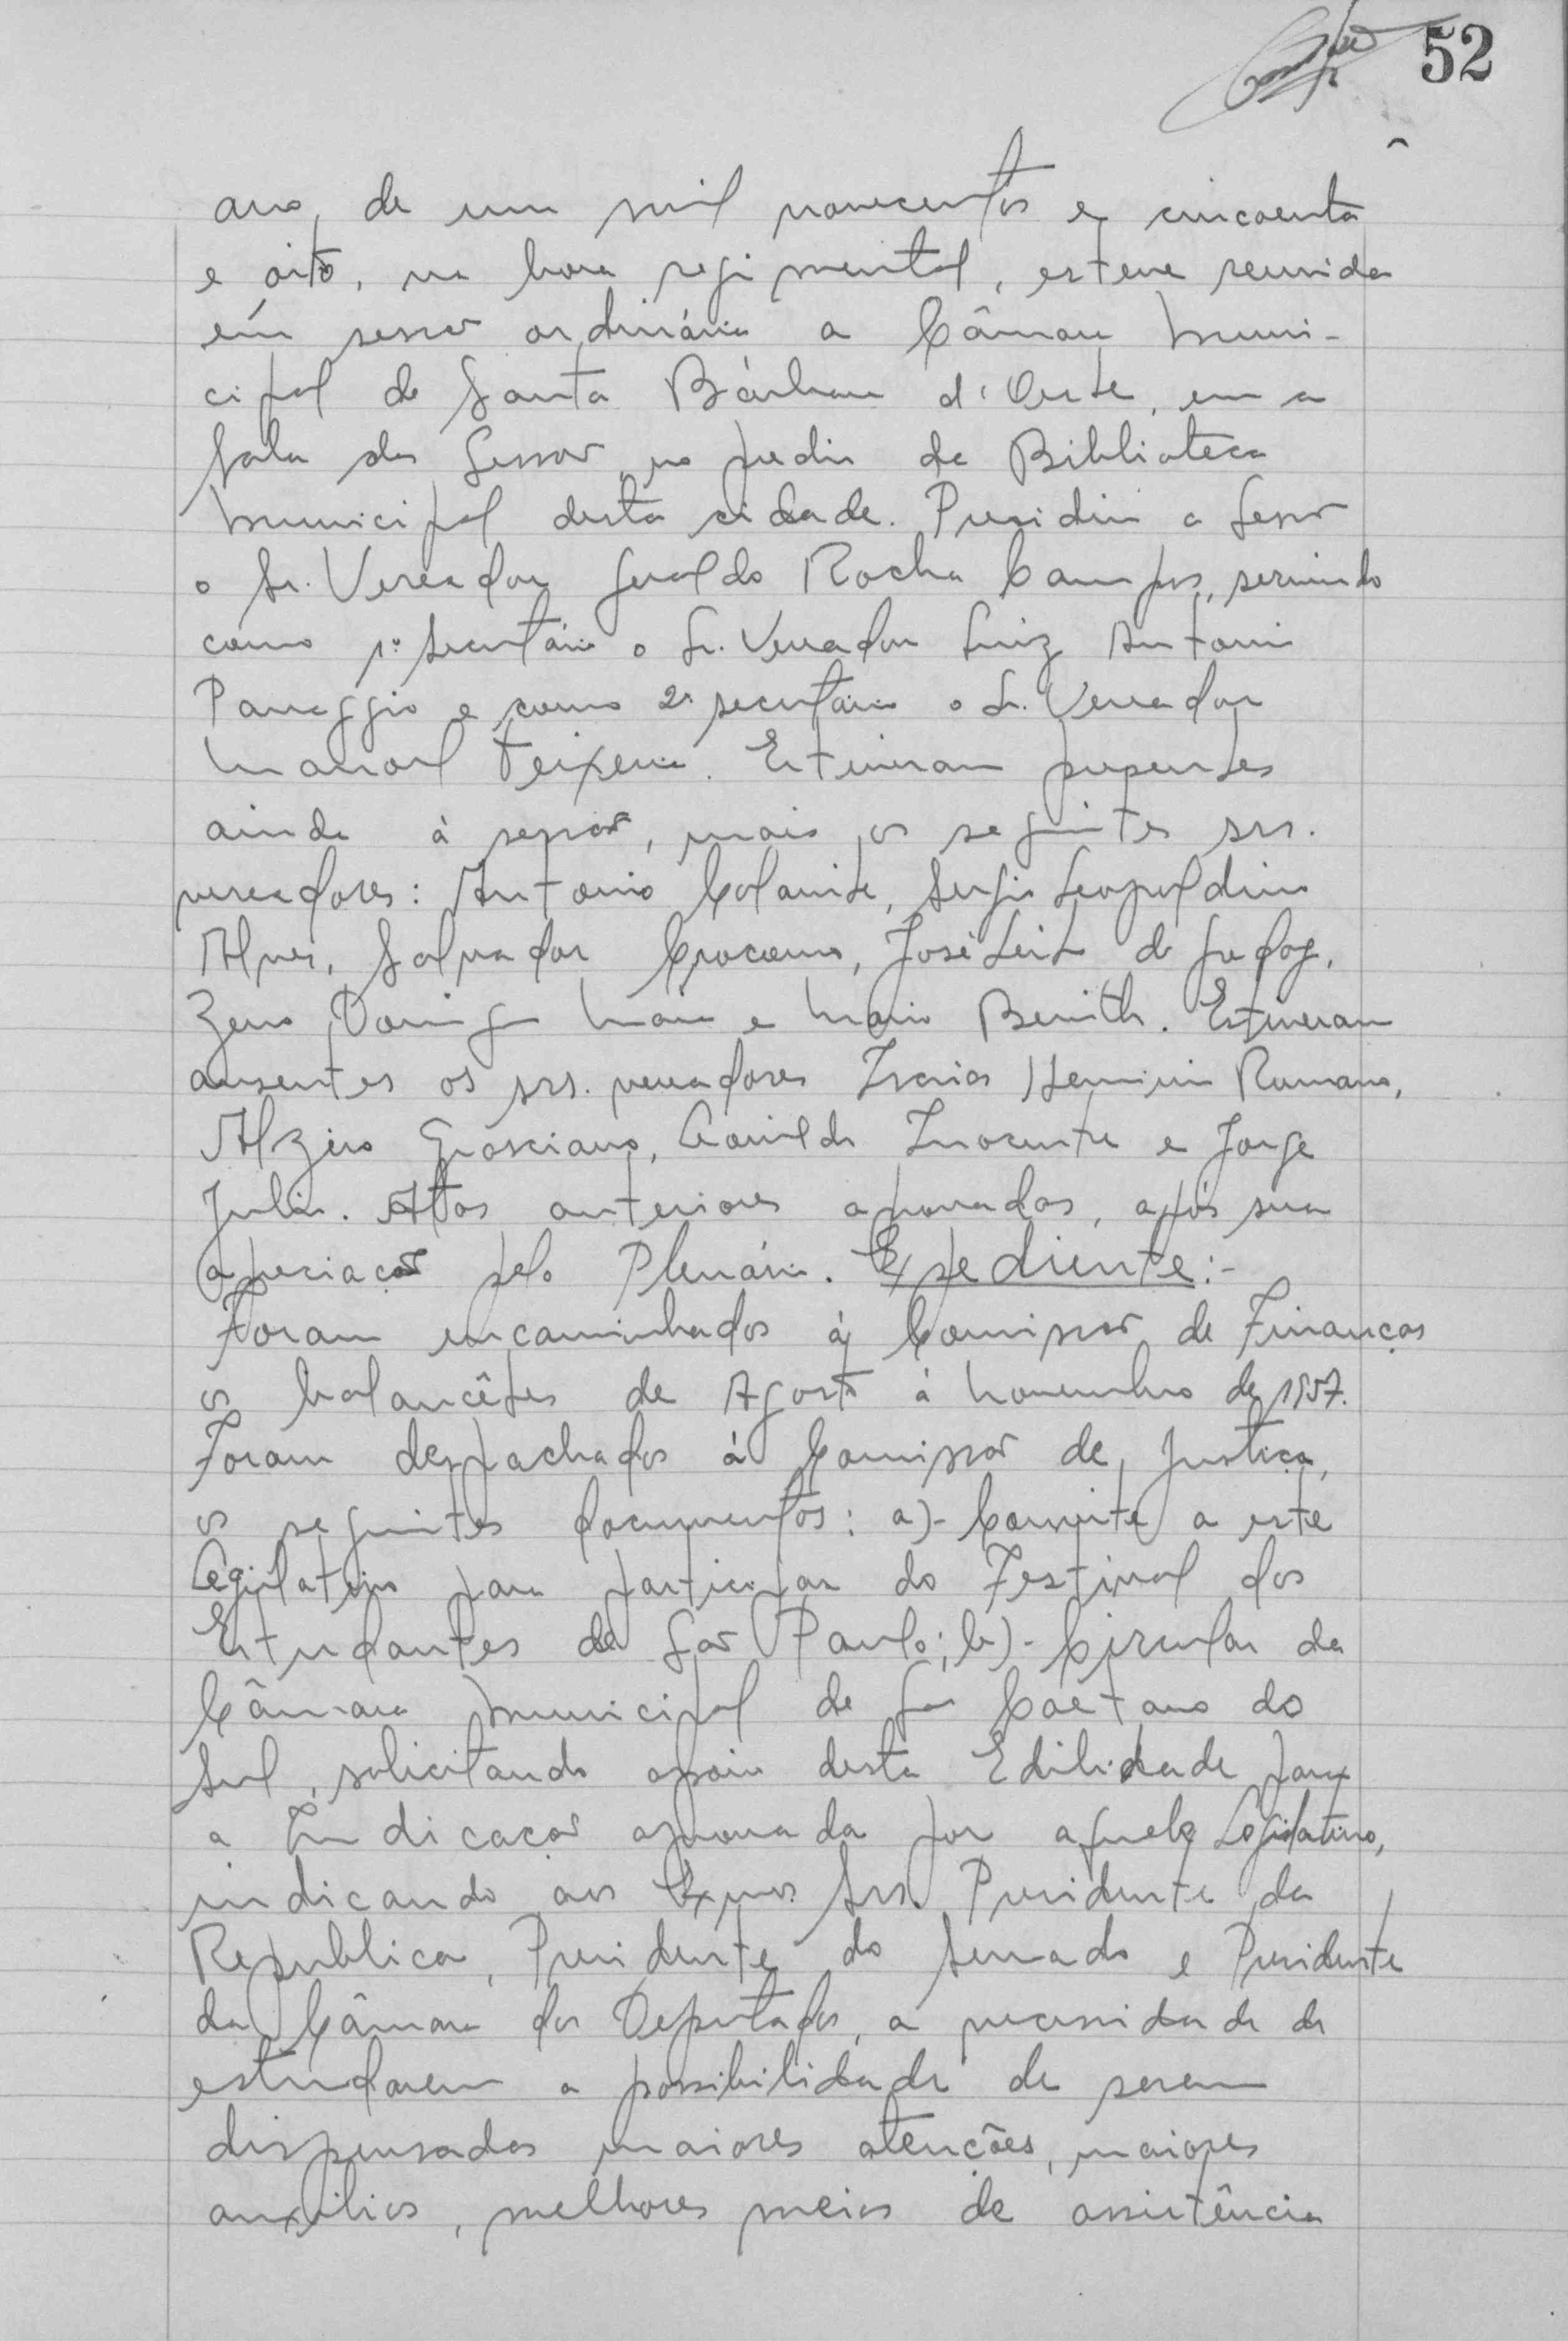 52
ano, de um mil novecentos e cincoenta
e oito, na hora regimental, esteve reunida
em sessão ordinária a Câmara Muni-
cipal de Santa Bárbara d'Oeste, em a
Sala das Sessão, no predio da Biblioteca
Municipal desta cidade. Presidiu a Sessão
o Sr. Vereador Geraldo Rocha Campos, servindo
como 1º Secretário o Sr. Vereador Luiz Antonio
Panaggio e como 2º secretário o Sr. Vereador
Manoel Teixeira. Estiveram presentes
ainda á sessão, mais os seguintes srs.
vereadores: Antonio Sergio Leopoldino
Alves, Salvador José Leite de Godoy,
Zeno Maia e Mario Estiveram
ausentes os srs. vereadores Isaias Romano,
Alziro Grasciano, Inocente e Jorge
Julio. Atas anteriores aprovadas, após sua
apreciação pelo Plenário. Expediente:-
Foram encaminhados á Comissão de Finanças
os balancêtes de Agosto á Novembro de 1957.
Foram despachados á Comissão de Justiça,
os seguintes documentos: a)- Convite a este
Legislativo para participar do Festival dos
Estudantes de São Paulo; b)- Circular da
Câmara Municipal de São Caetano do
Sul, solicitando apoio desta Edilidade para
a Indicação aprovada por aquele Legislativo,
indicando aos Exmos Srs. Presidente da
Republica, Presidente do Senado e Presidente
da Câmara dos Deputados, a necessidade de
estudarem a possibilidade de serem
dispensadas maiores atenções, maiores
auxílios, melhores meios de assistência